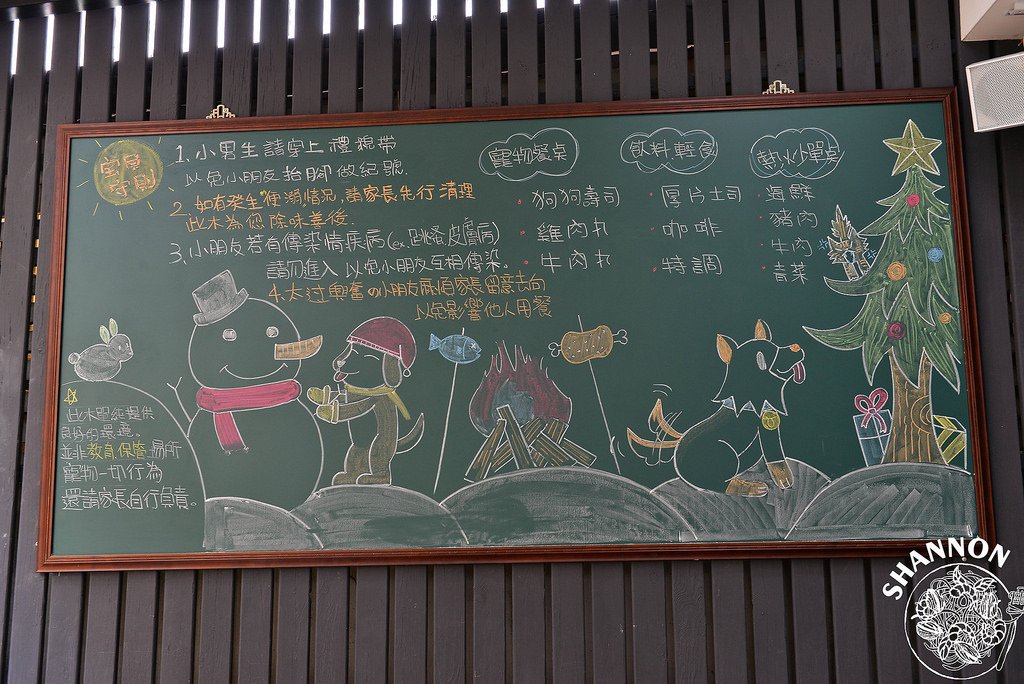 守則
1. 小男生請穿上禮貌帶
以免小朋友抬腳做紀號.
2. 如有發生"便溺情況,請家長先行清理
此木為您除味善後.
3. 小朋友若有傳染情疾病(ex.跳蚤.皮膚病)
請勿進入 以免小朋友互相傳染。
4. 太過興奮の小朋友麻煩家長留意去向
以免影響他人用餐
寵物餐桌
· 狗狗壽司
· 雞肉丸
· 牛肉丸
飲料輕食
· 厚片土司
· 咖啡
· 特調
單點
· 海鮮
· 豬肉
· 牛肉
· 青菜
此木單純提供
良好的環境。
並非教育.保管.場所
寵物一切行為
還請家長自行負責。
SHANNON